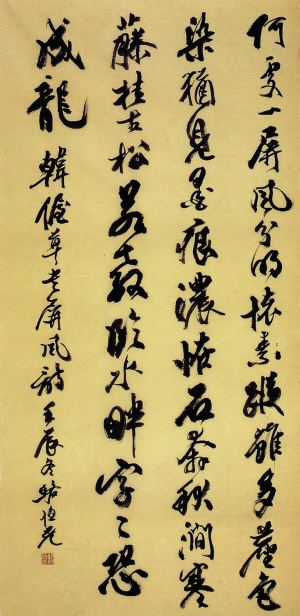 何處一屏風分明懷素蹤雖多塵色
染猶見墨痕濃怪石奔秋澗寒
藤挂古松若教臨水畔字〻恐
成龍 韓偓草書屏風詩 壬辰冬 駱恒光